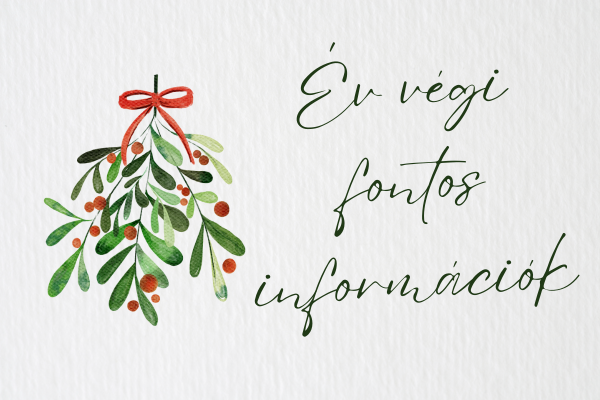 Év végi
fontos
információk